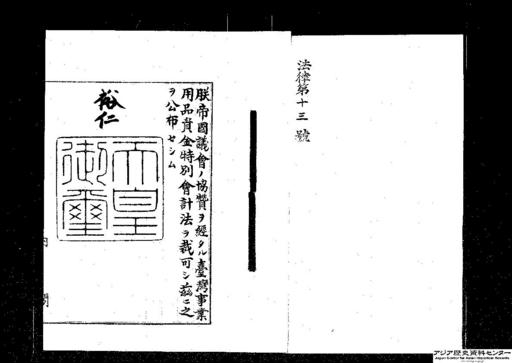 法律第十三號
朕帝國議會ノ協贊ヲ經タル臺灣事業
用品資金特別會計法ヲ裁可シ茲ニ之
ヲ公布セシム
裕仁
天皇
御璽
内
閣
アジア歴史資料センター
Japan Center for Asian Historical Records